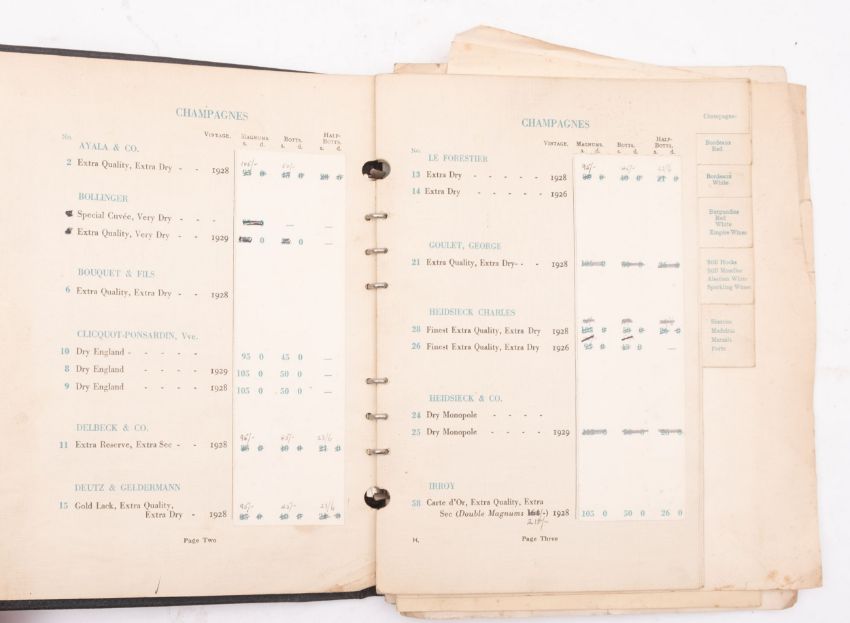 CHAMPAGNES
No. VINTAGE. MAGNUMS. BOTTS. HALF-BOTTS.
s. d. s. d. s. d.
AYALA & CO.
2 Extra Quality, Extra Dry - - 1928
BOLLINGER
Special Cuvée, Very Dry - - - — —
Extra Quality, Very Dry - - 1929 0 0 —
BOUQUET & FILS
6 Extra Quality, Extra Dry - - 1928
CLICQUOT-PONSARDIN, Vve.
10 Dry England - - - - - 95 0 45 0 —
8 Dry England - - - - 1929 105 0 50 0 —
9 Dry England - - - - 1928 105 0 50 0 —
DELBECK & CO.
95/- 45/- 23/6
11 Extra Reserve, Extra Sec - - 1928
DEUTZ & GELDERMANN
95/- 45/- 23/6
15 Gold Lack, Extra Quality,
Extra Dry - 1928
Page Two
CHAMPAGNES
No. VINTAGE. MAGNUMS. BOTTS. HALF-BOTTS.
s. d. s. d. s. d.
LE FORESTIER
95/- 45/- 23/6
13 Extra Dry - - - - - 1928
14 Extra Dry - - - - - 1926
GOULET, GEORGE
21 Extra Quality, Extra Dry- - - 1928
HEIDSIECK CHARLES
28 Finest Extra Quality, Extra Dry 1928
26 Finest Extra Quality, Extra Dry 1926 —
HEIDSIECK & CO.
24 Dry Monopole - - - -
25 Dry Monopole - - - - 1929
IRROY
38 Carte d'Or, Extra Quality, Extra
Sec (Double Magnums /-) 1928 105 0 50 0 26 0
H. Page Three
Champagne
Bordeaux
Red
Bordeaux
White
Burgundies
Red
White
Empire Wines
Still Hocks
Still Moselles
Alsatian Wines
Sparkling Wines
Sherries
Madeiras
Marsala
Ports